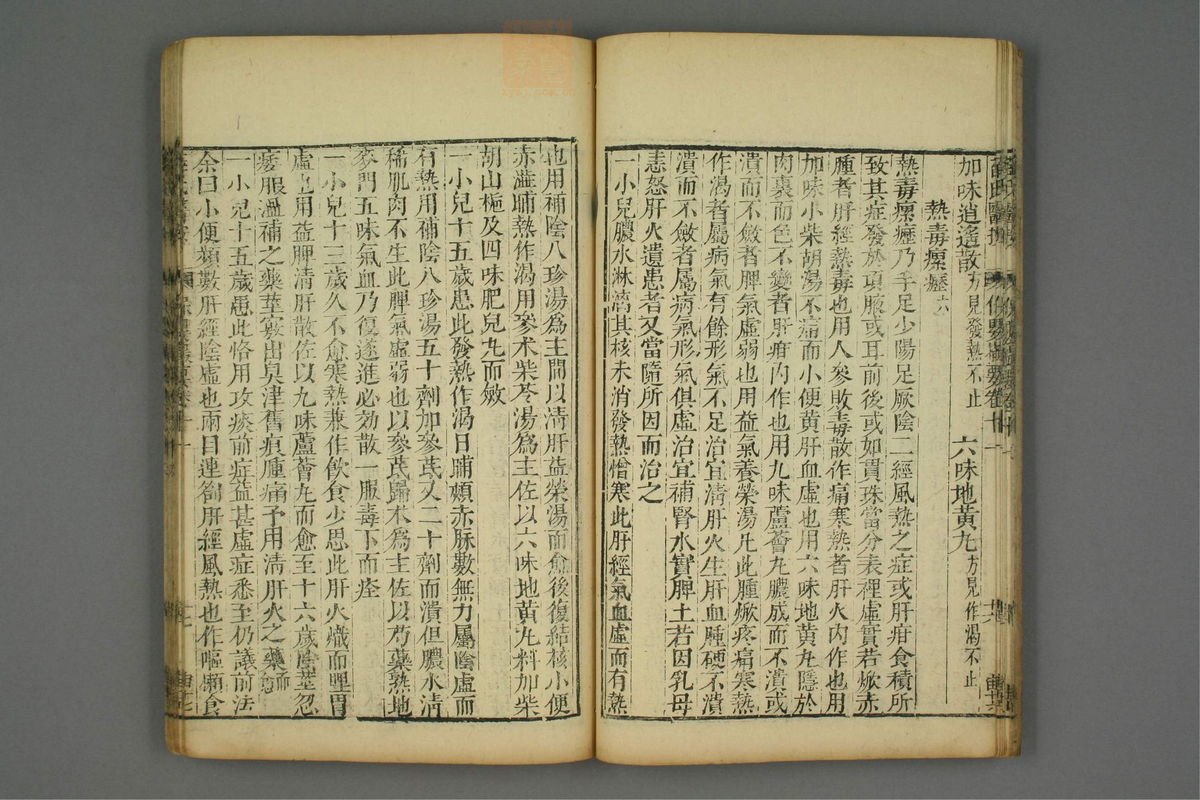 加味逍遙散方見發熱不止　六味地黃丸方見作渴不止
熱毒瘰癧六
熱毒瘰癧乃手足少陽足厥陰二經風熱之症或肝疳食積所
致其症發於項腋或耳前後或如貫珠當分表裡虛實若焮赤
腫者肝經熱毒也用人參敗毒散作痛寒熱者肝火內作也用
加味小柴胡湯不痛而小便黃肝血虛也用六味地黃丸隱於
肉裏而色不變者肝疳內作也用九味蘆薈丸膿成而不潰或
潰而不斂者脾氣虛弱也用益氣養榮湯凡此腫焮疼痛寒熱
作渴者屬病氣有餘形氣不足治宜清肝火生肝血腫硬不潰
潰而不斂者屬病氣形氣俱虛治宜補腎水實脾土若因乳母
恚怒肝火遺患者又當隨所因而治之
一小兒膿水淋漓其核未消發熱憎寒此肝經氣血虛而有熱
也用補陰八珍湯爲主間以清肝益榮湯而愈後復結核小便
赤澁晡熱作渴用參术柴苓湯爲主佐以六味地黃丸料加柴
胡山梔及四味肥兒丸而斂
一小兒十五歲患此發熱作渴日晡頰赤脉數無力屬陰虛而
有熱用補陰八珍湯五十劑加參芪又二十劑而潰但膿水清
稀肌肉不生此脾氣虛弱也以參芪歸术爲主佐以芍藥熟地
麥門五味氣血乃復遂進必効散一服毒下而痊
一小兒十三歲久不愈寒熱兼作飲食少思此肝火熾而脾胃
虛也用益脾清肝散佐以九味蘆薈丸而愈至十六歲陰莖忽
痿服溫補之藥莖竅出臭津舊痕腫痛予用清肝火之藥而愈
一小兒十五歲患此恪用攻痰前症益甚虛症悉至仍議前法
余曰小便頻數肝經陰虛也兩目連劄肝經風熱也作嘔懶食